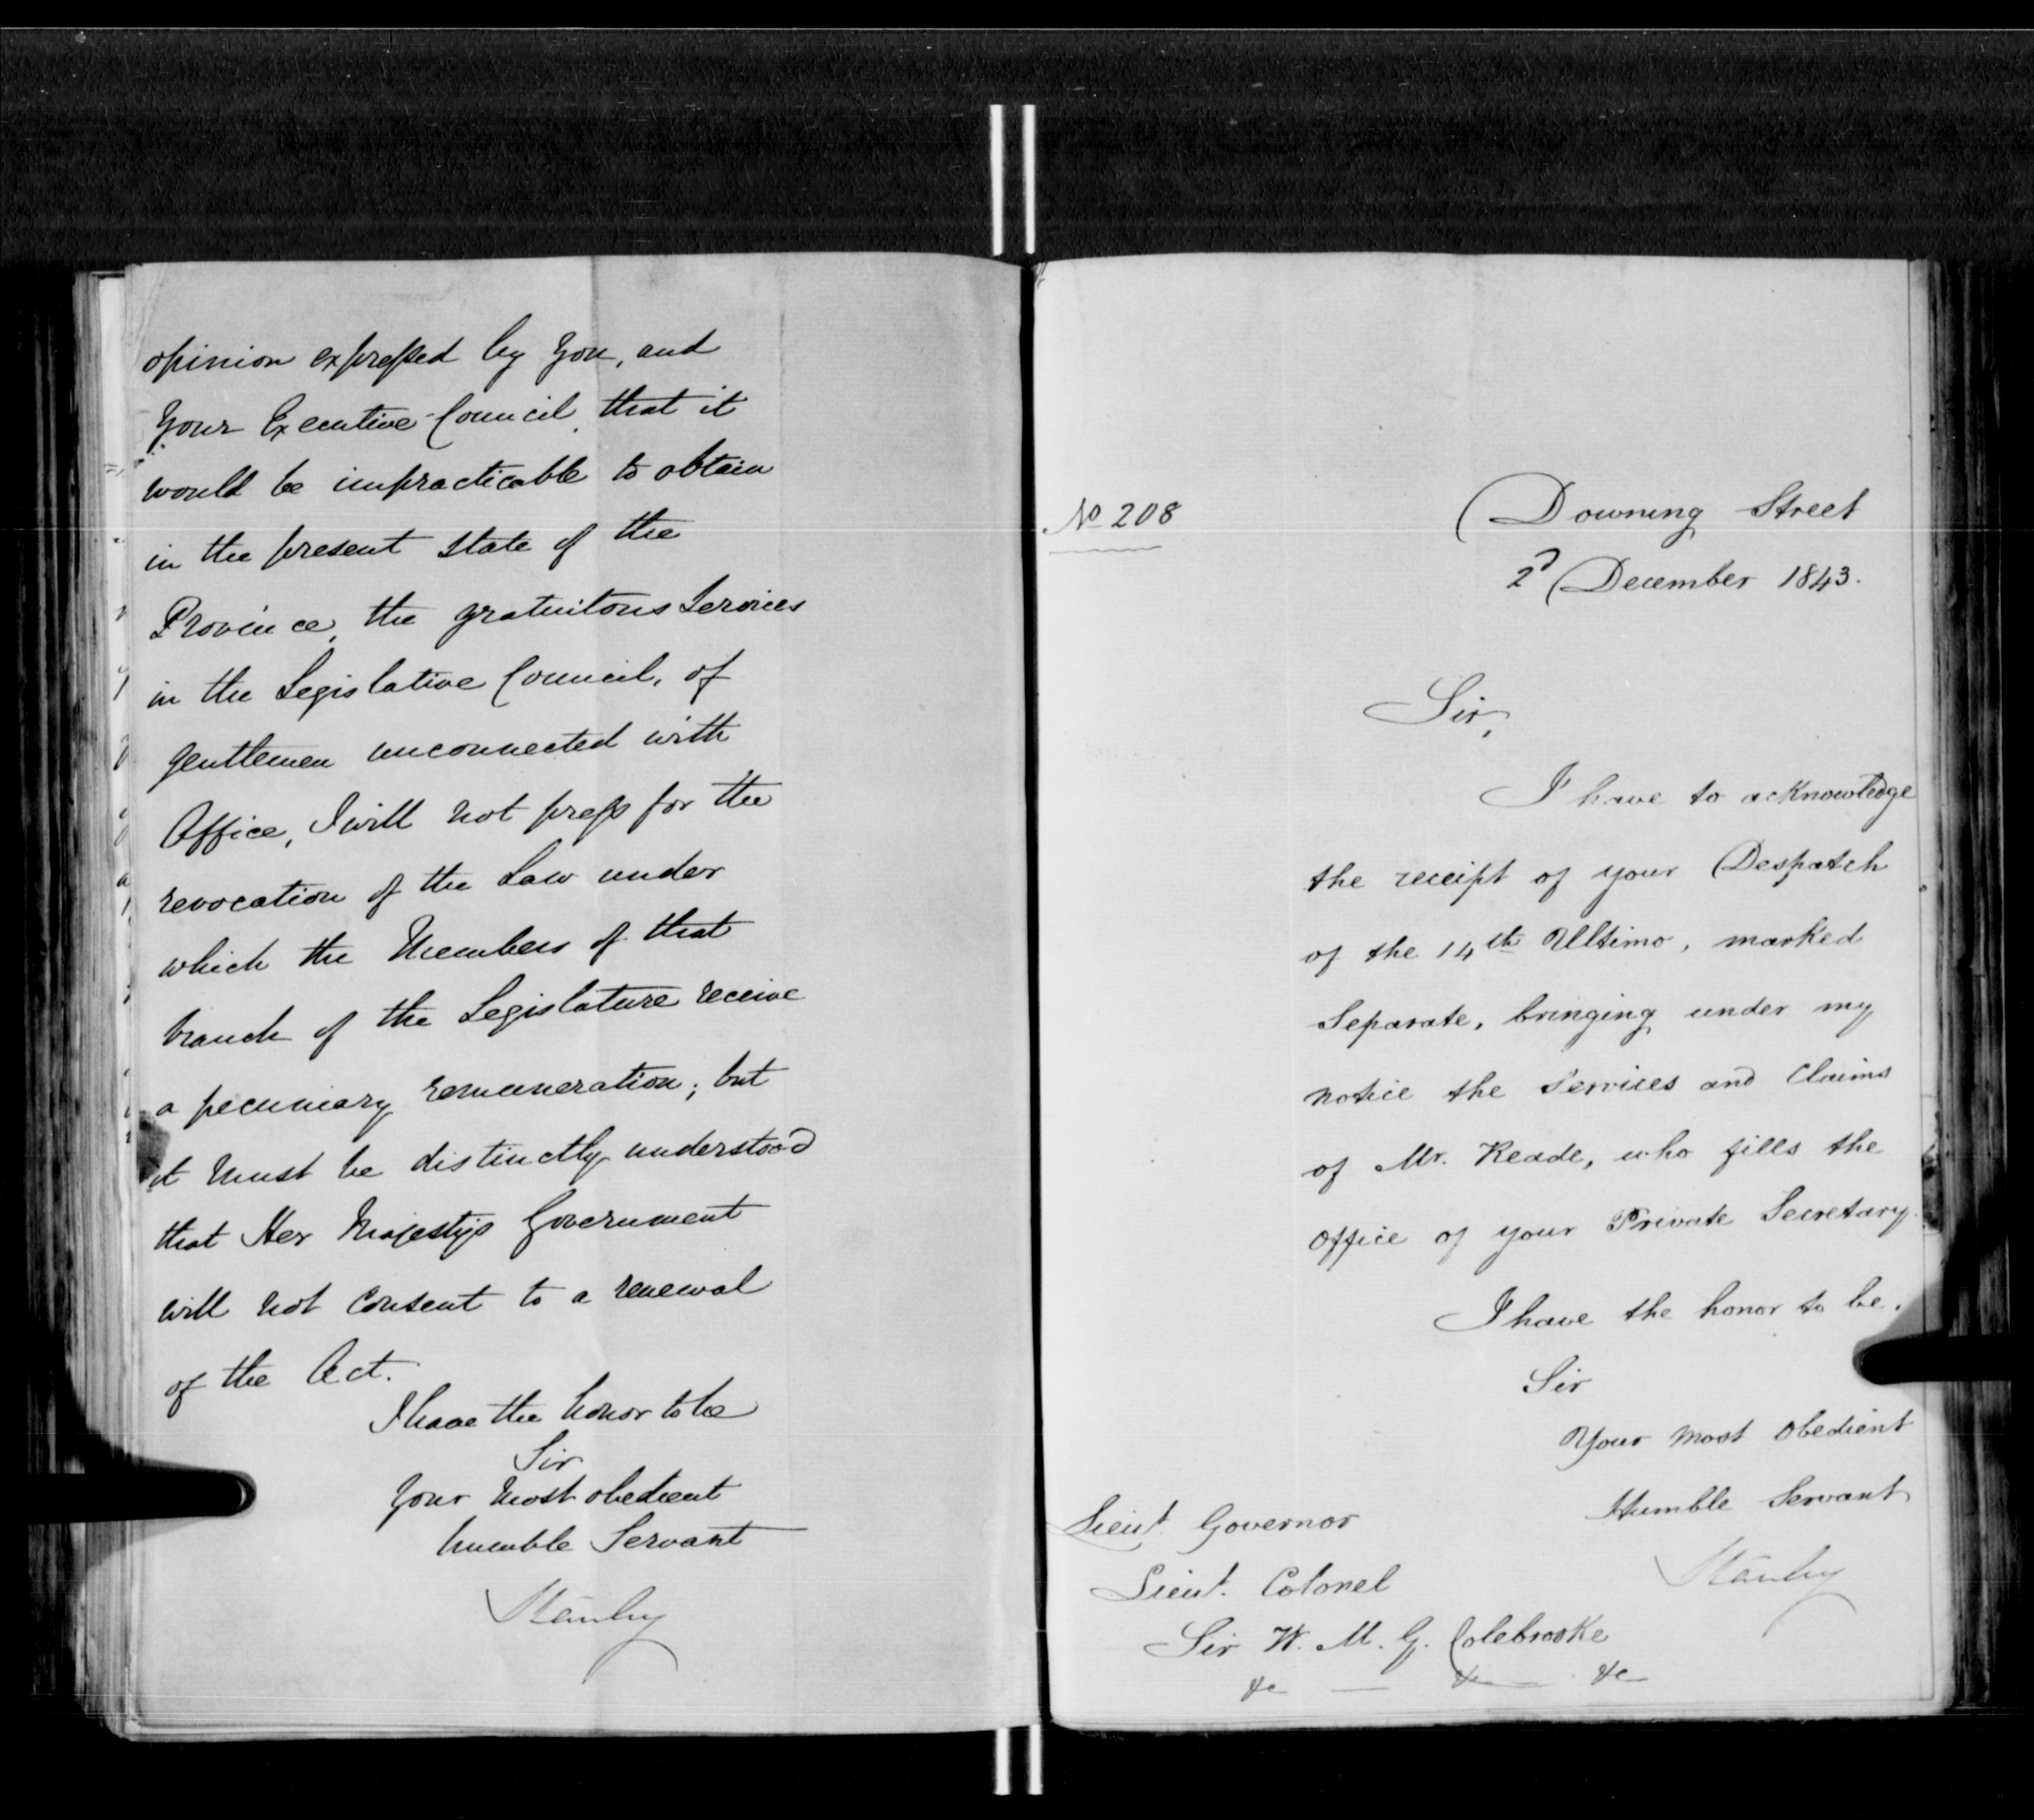 opinion expressed by you, and
your Executive Council, that it
would be impracticable to obtain
in the present state of the
Province, the gratuitous Services
in the Legislative Council, of
gentlemen unconnected with
Office, I will not press for the
revocation of the Law under
which the Members of that
branch of the Legislature receive
a pecuniary remuneration; but
it must be distinctly understood
that Her Majesty's Government
will not consent to a renewal
of the Act.
I have the honor to be
Sir
Your most obedient
humble Servant
Stanley
No 208
Downing Street
2d December 1843.
Sir,
I have to acknowledge
the receipt of your Despatch
of the 14th Ultimo, marked
Separate, bringing under my
notice the Services and Claims
of Mr. Reade, who fills the
Office of your Private Secretary.
I have the honor to be.
Sir
Your most Obedient
Humble Servant
Stanley
Lieut Governor
Lieut. Colonel
Sir W. M. G. Colebrooke
&c — &c — &c